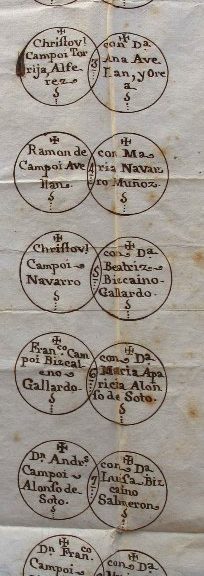 Christov.l
Campoi Tor
rija Alfe
rez
3
con D.a
Ana Ave
llan, y Ore
a
Ramon de
Campoi Ave
llan.
4
con Ma
ria Navar
ro Muñoz.
Christov.l
Campoi
Navarro
5
con D.a
Beatriz
Bizcaino
Gallardo.
Fran.co Cam
poi Bizcai
no
Gallardo.
6
con D.a
Maria Apa
ricia Alon
so de Soto.
D.n Andr.s
Campoi
Alonso de
Soto.
7
con D.a
Luisa Biz
caino
Salmeron
D.n Fran.co
Campoi
con D.a